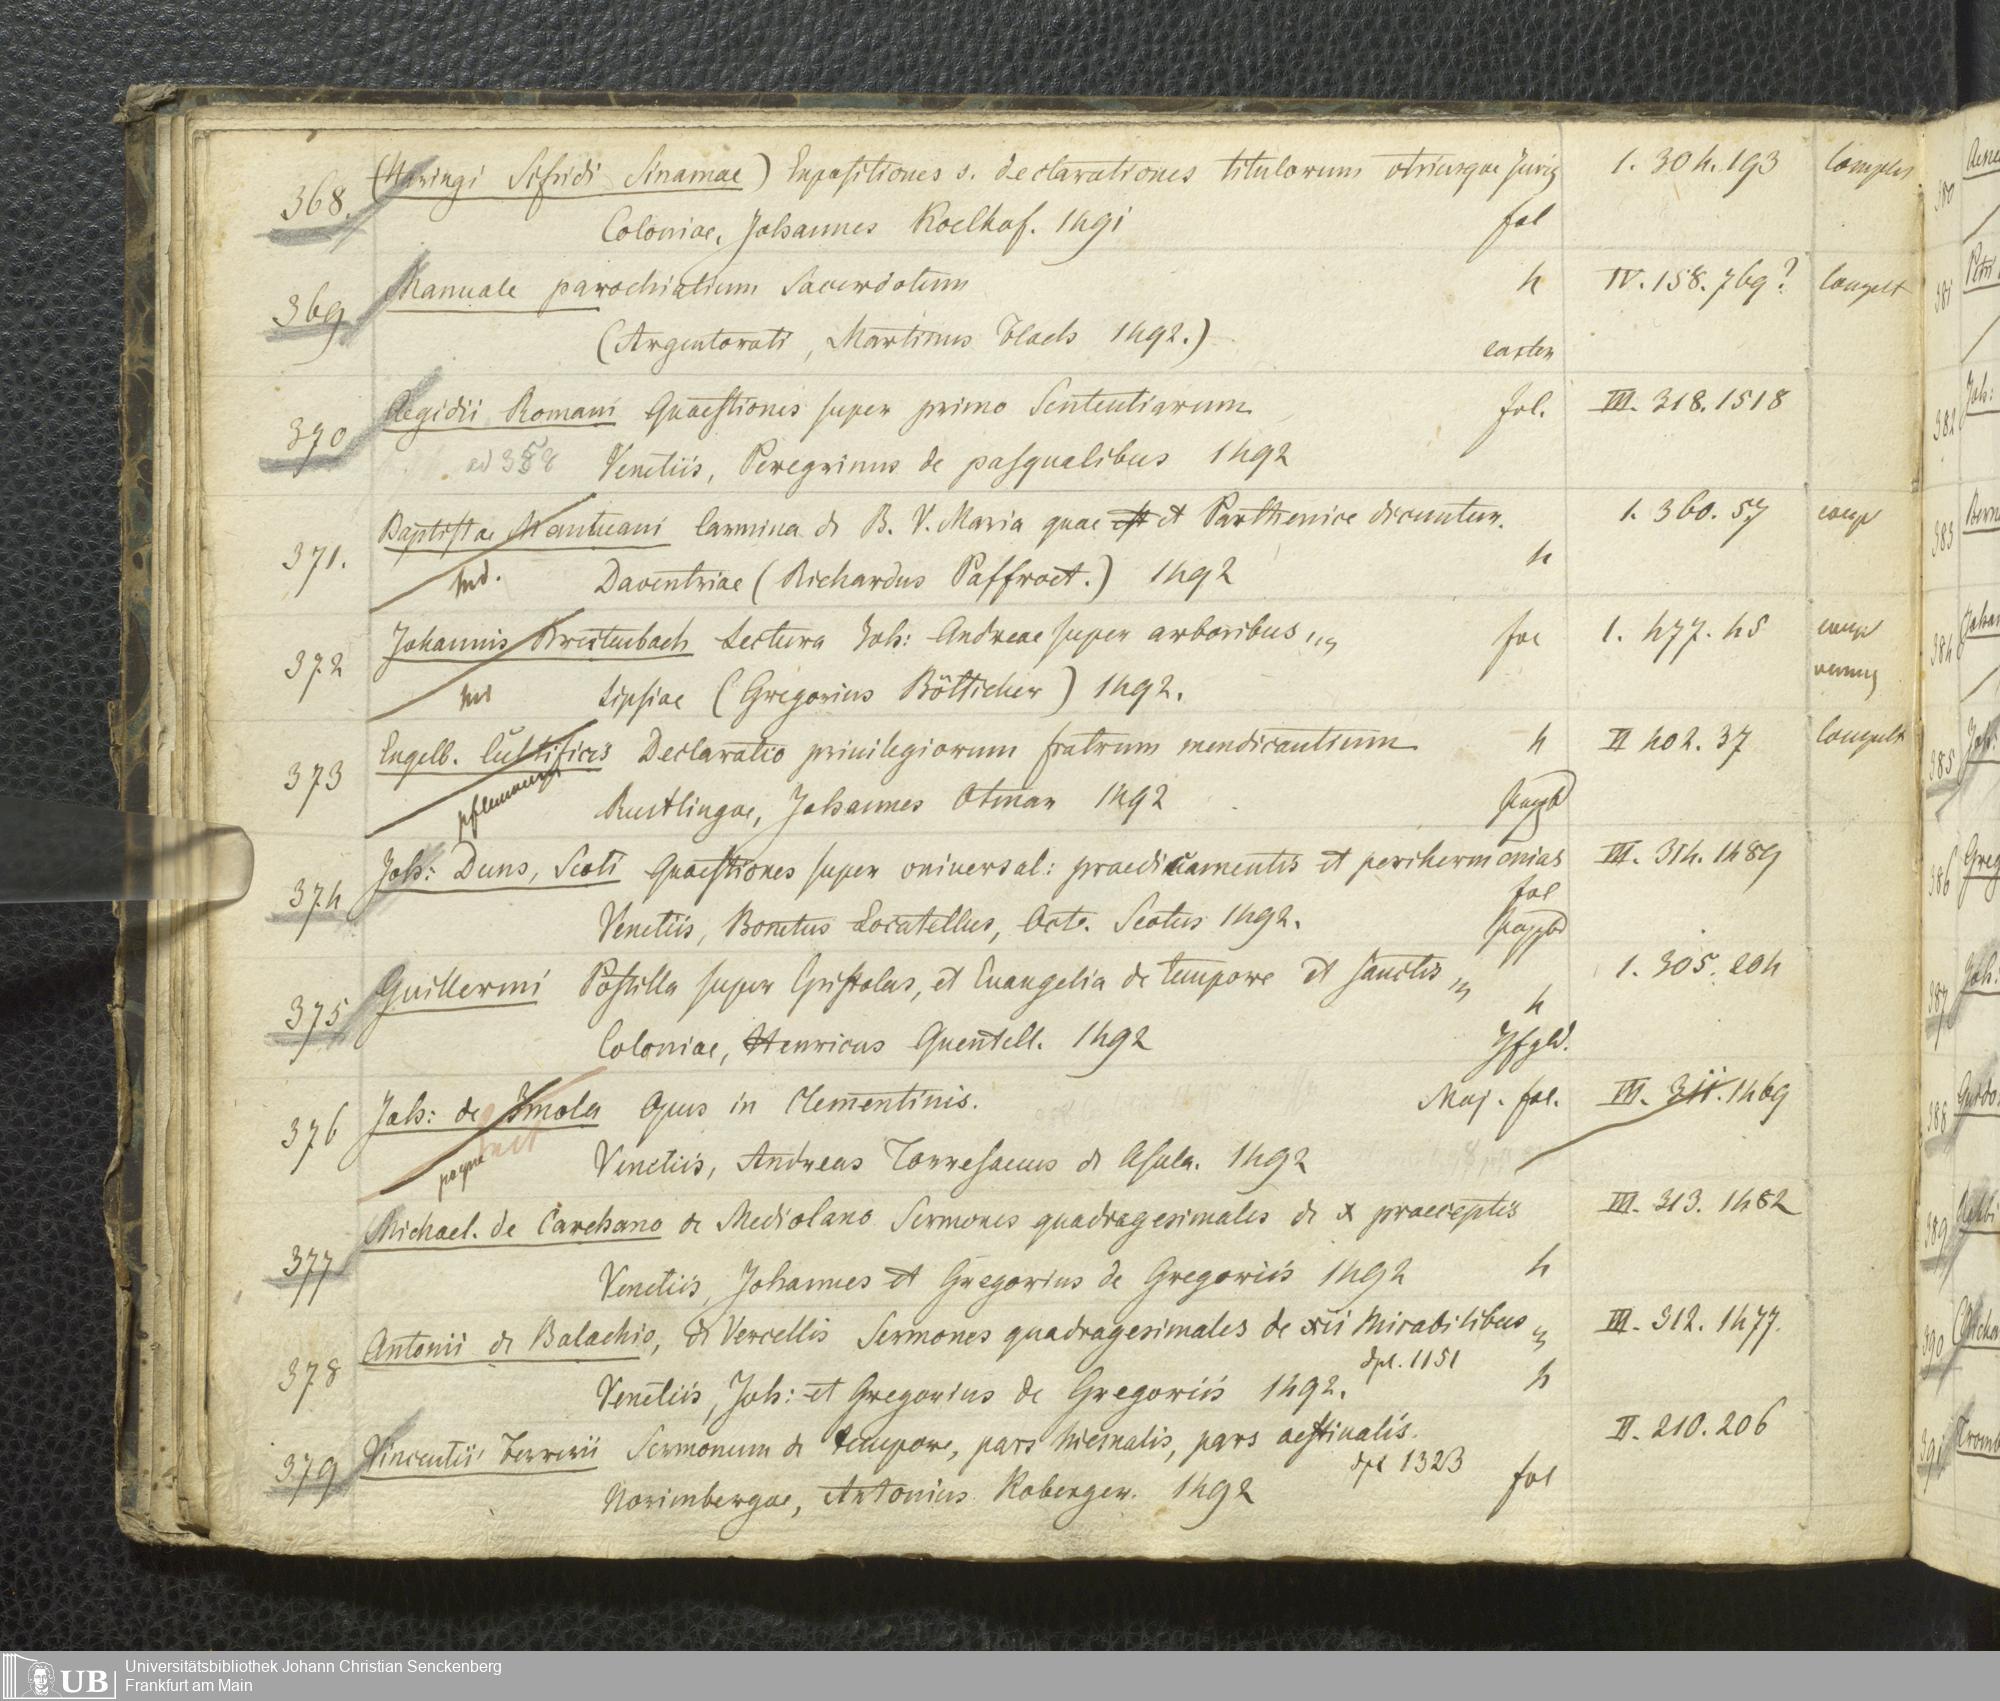 368. (Haringi Sifridi Sinamae) Expositiones s. declarationes titulorum utriusque Juris 1. 304. 193 complet
Coloniae, Johannes Koelhof. 1491 fol
369 Manuale parochialium Sacerdotum 4 IV. 158. 769? complt
(Argentorati, Martinus Flach 1492.)
370 Aegidii Romani Quaestiones super primo Sententiarum fol. III. 318. 1518
ad 358 Venetiis, Peregrinus de pasqualibus 1492
371. Baptistae Mantuani Carmina de B. V. Maria quae et Parthenice dicuntur. 1. 360. 57 compl
Daventriae (Richardus Paffroet.) 1492 4
372 Johannis Breitenbach Lectura Joh: Andreae super arboribus fol 1. 477. 45 compl
Lipsiae (Gregorius Bötticher) 1492.
373 Engelb. Cultificis Declaratio privilegiorum fratrum mendicantium 4 II 402. 37 complt
Reutlingae, Johannes Otmar 1492 Pappbd
374 Joh: Duns, Scoti Quaestiones super universal: praedicamentis et perihermenias III. 314. 1489
fol
Venetiis, Bonetus Locatellus, Octv. Scotus 1492. Pappbd
375 Guillermi Postilla super Epistolas, et Evangelia de tempore et sanctis 1. 305. 204
4
Coloniae, Henricus Quentell. 1492
376 Joh: de Imola Opus in Clementinis. Maj. fol. III. 311. 1469
Venetiis, Andreas Torresanus de Asula. 1492
377 Michael. de Carchano de Mediolano Sermones quadragesimales de x praeceptis III. 313. 1482
Venetiis, Johannes et Gregorius de Gregoriis 1492 4
378 Antonii de Balachio, de Vercellis Sermones quadragesimales de xii Mirabilibus III. 312. 1477.
dpl. 1151
Venetiis, Joh: et Gregorius de Gregoriis 1492. 4
379 Vincentii Ferrerii Sermonum de tempore, pars hiemalis, pars aestivalis. II. 210. 206
dpl 1323
Norimbergae, Antonius Koberger. 1492 fol
380
381
382 Joh:
383 Bern
384 Johan
385 Joh:
386 Greg
387 Joh:
388 Guido
389
390
391
UB Universitätsbibliothek Johann Christian Senckenberg
Frankfurt am Main